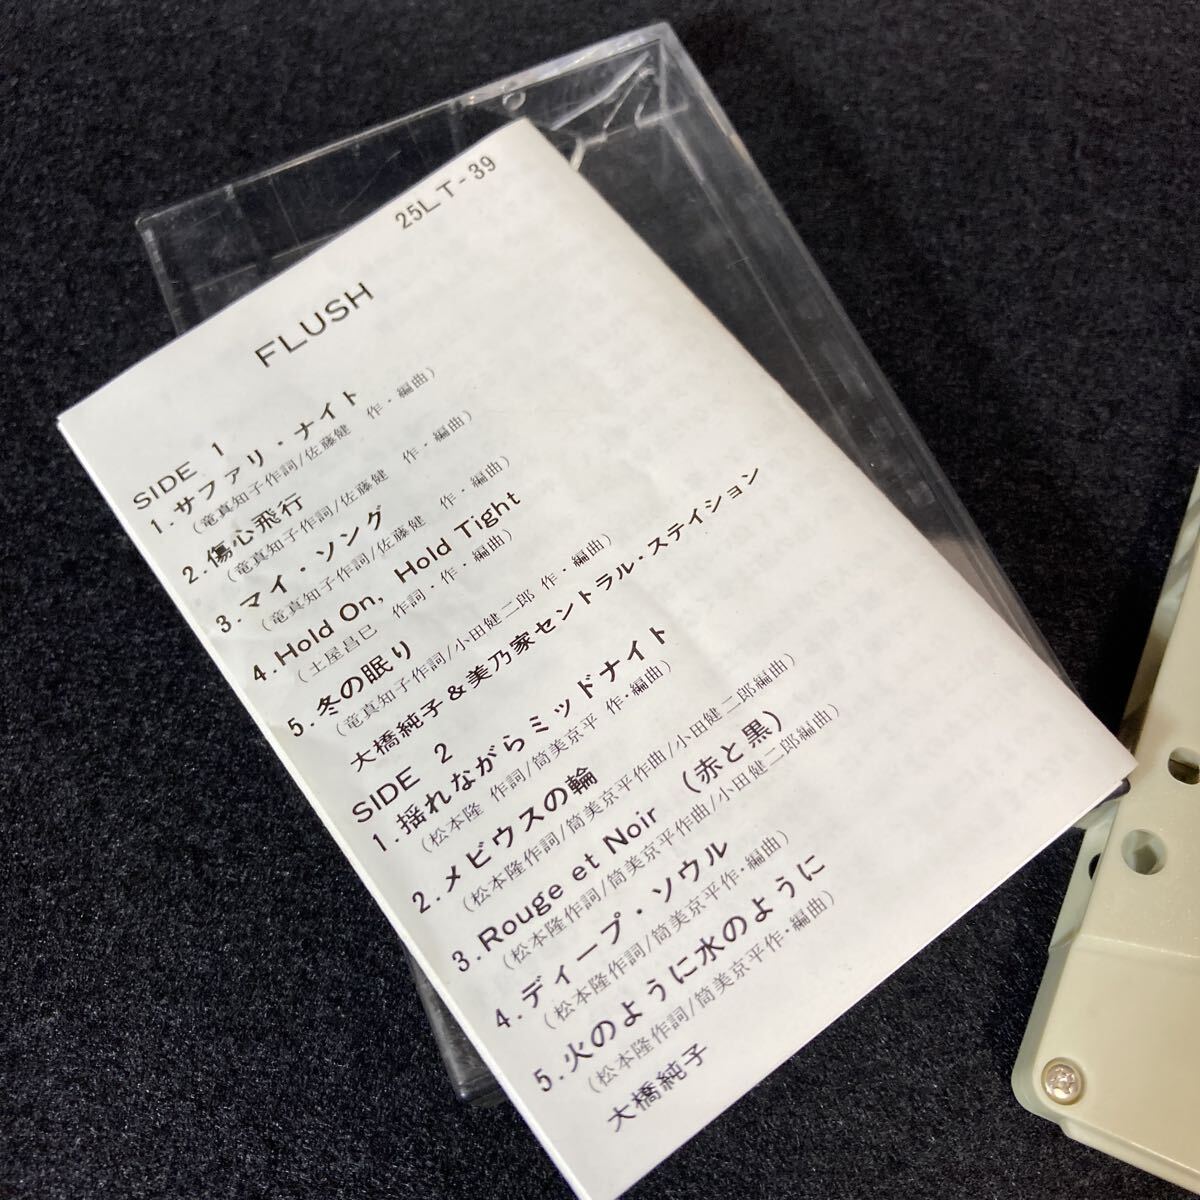 25LT-39
FLUSH
SIDE 1
1.サファリ・ナイト
(竜真知子作詞/佐藤健 作・編曲)
2.傷心飛行
(竜真知子作詞/佐藤健 作・編曲)
3.マイ・ソング
(竜真知子作詞/佐藤健 作・編曲)
4.Hold On, Hold Tight
(土屋昌巳 作詞・作・編曲)
5.冬の眠り
(竜真知子作詞/小田健二郎 作・編曲)
大橋純子&美乃家セントラル・ステイション
SIDE 2
1.揺れながらミッドナイト
(松本隆 作詞/筒美京平 作・編曲)
2.メビウスの輪
(松本隆作詞/筒美京平作曲/小田健二郎編曲)
3.Rouge et Noir (赤と黒)
(松本隆作詞/筒美京平作曲/小田健二郎編曲)
4.ディープ・ソウル
(松本隆作詞/筒美京平作・編曲)
5.火のように水のように
(松本隆作詞/筒美京平作・編曲)
大橋純子